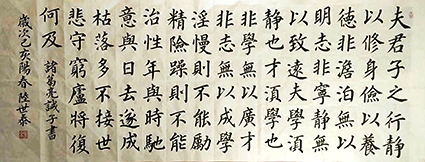 夫君子之行靜
以修身儉以養
德非澹泊無以
明志非寧靜無
以致遠夫學須
靜也才須學也
非學無以廣才
非志無以成學
淫慢則不能勵
精險躁則不能
治性年與時馳
意與日去遂成
枯落多不接世
悲守窮廬將復
何及 諸葛亮誡子書
歲次己亥陽春 陸世泰